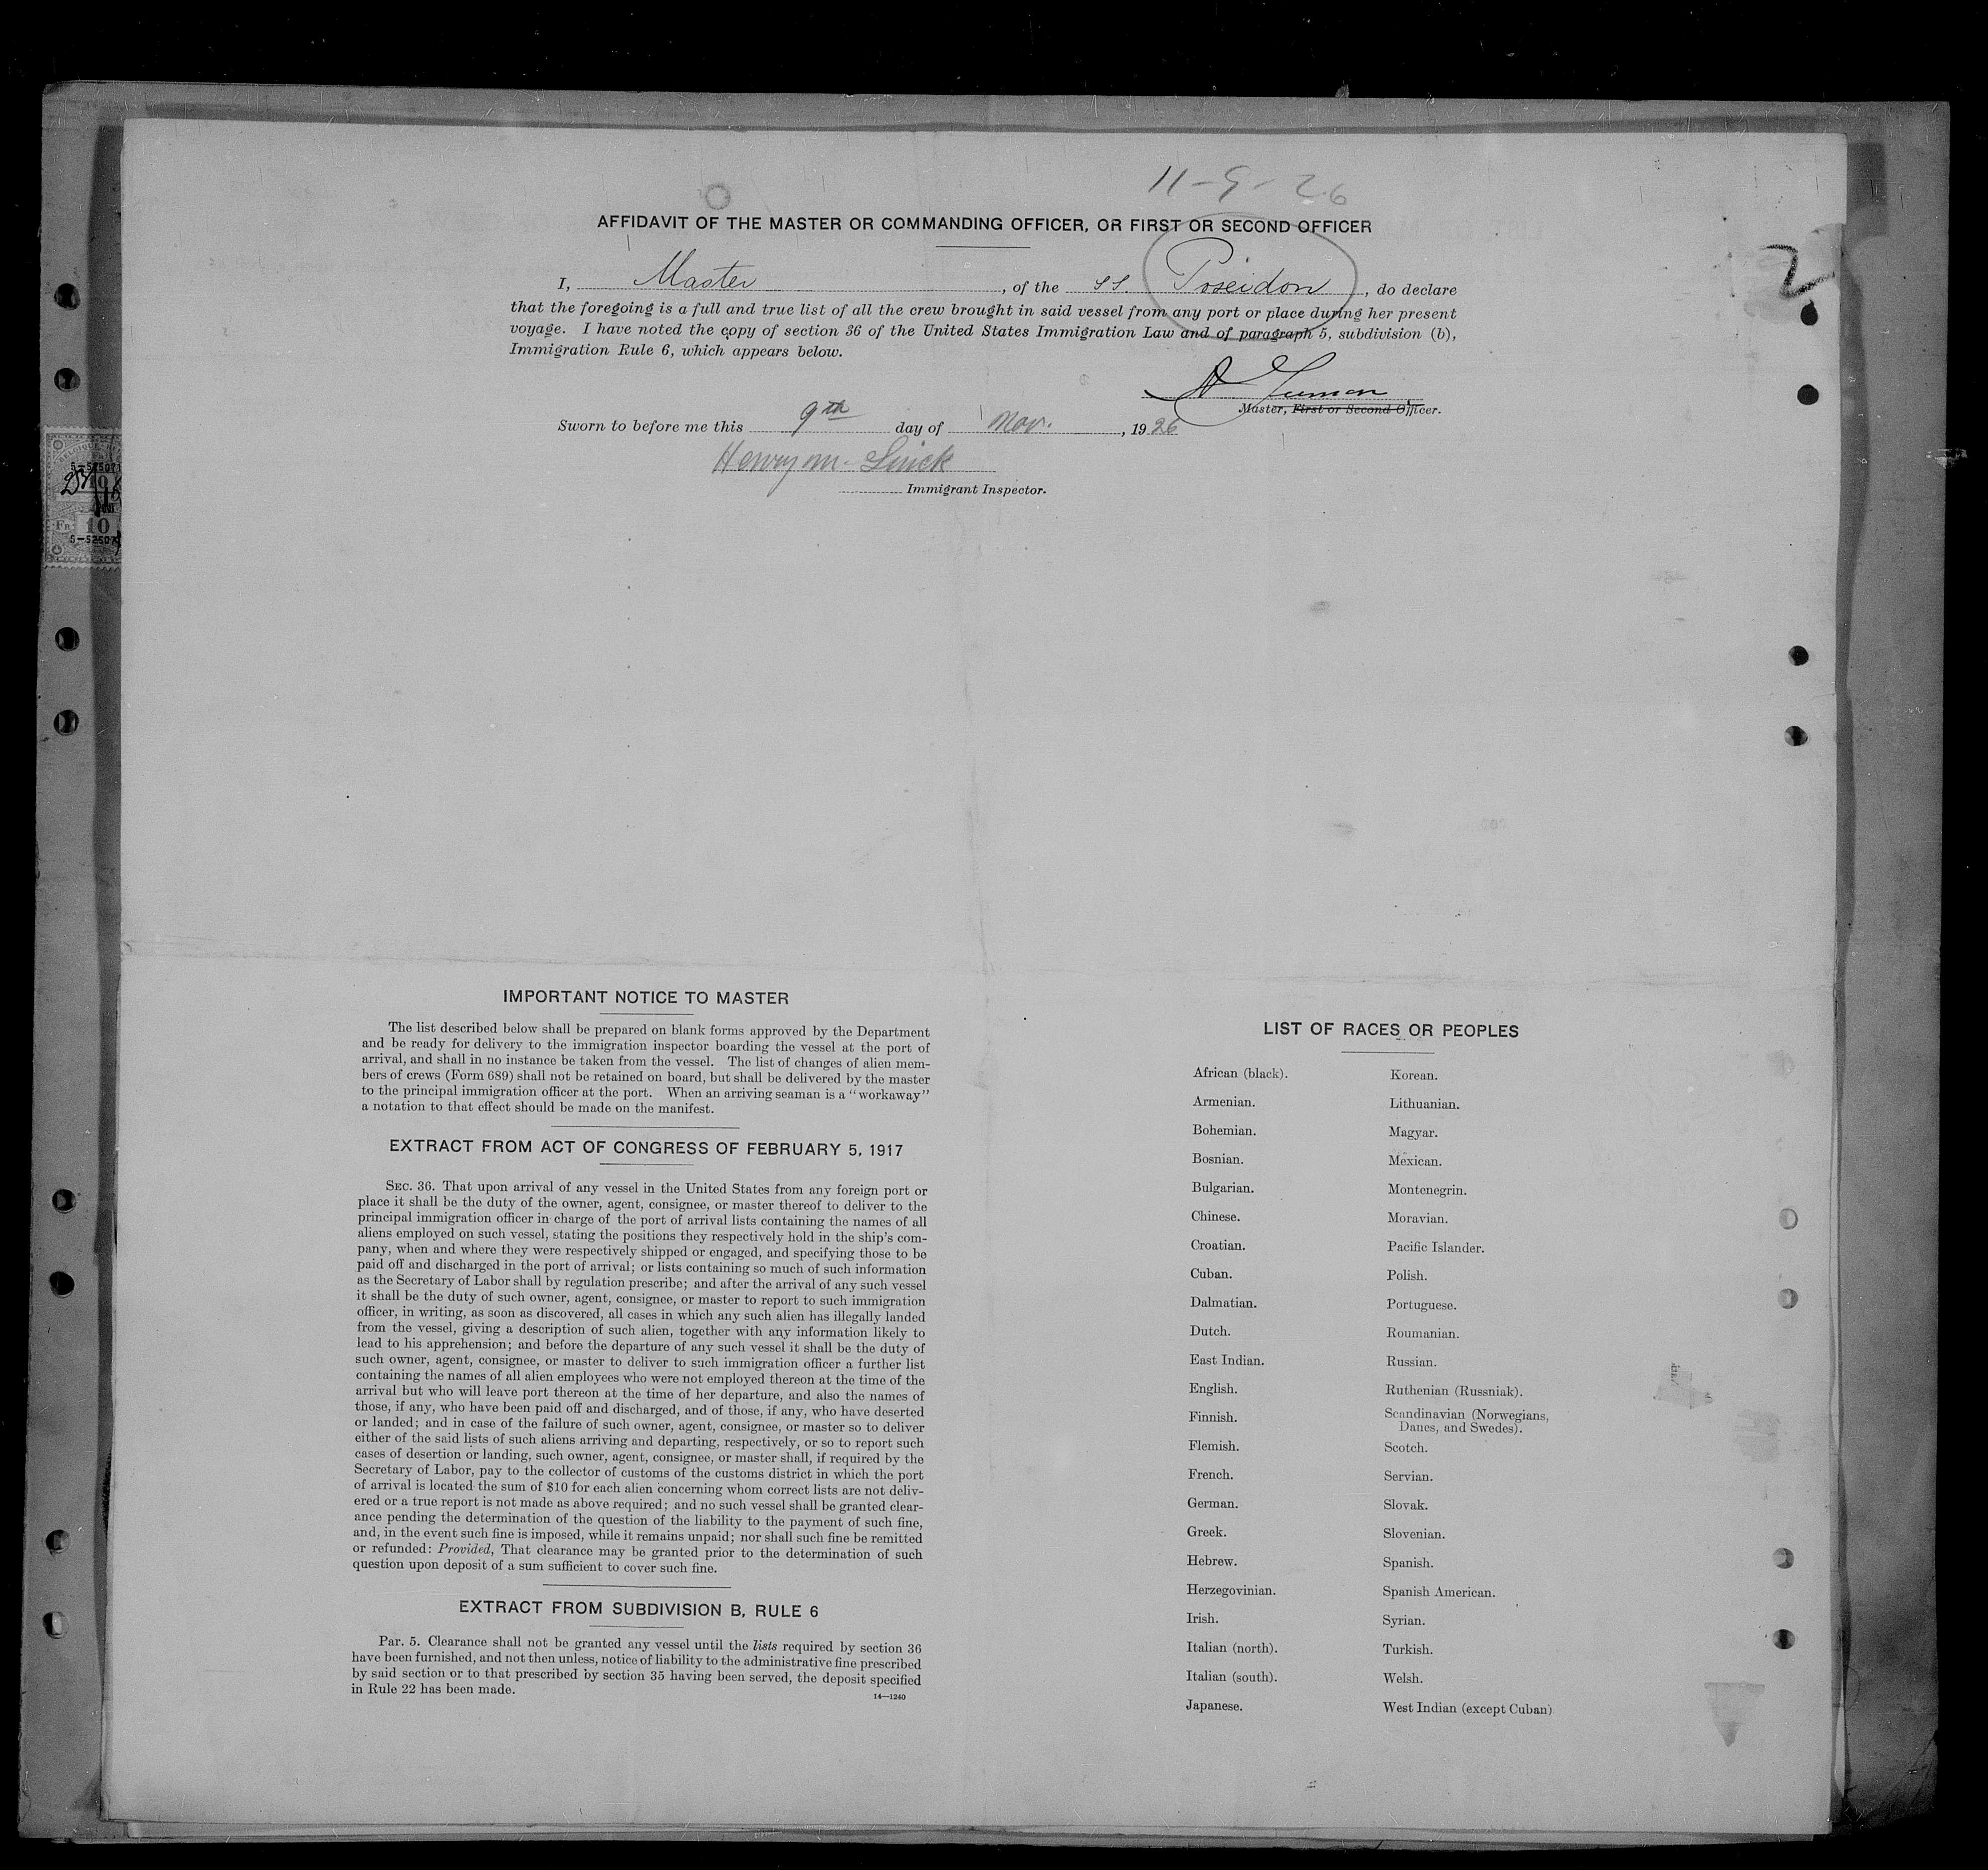 11-9-26
AFFIDAVIT OF THE MASTER OR COMMANDING OFFICER, OR FIRST OR SECOND OFFICER
2
I, Master, of the SS. Poseidon, do declare
that the foregoing is a full and true list of all the crew brought in said vessel from any port or place during her present
voyage. I have noted the copy of section 36 of the United States Immigration Law and of paragraph 5, subdivision (b),
Immigration Rule 6, which appears below.
Master, First or Second Officer.
Sworn to before me this 9th day of Nov., 1926
Henry M.
Immigrant Inspector.
10
Fr. 10
IMPORTANT NOTICE TO MASTER
The list described below shall be prepared on blank forms approved by the Department
and be ready for delivery to the immigration inspector boarding the vessel at the port of
arrival, and shall in no instance be taken from the vessel. The list of changes of alien mem-
bers of crews (Form 689) shall not be retained on board, but shall be delivered by the master
to the principal immigration officer at the port. When an arriving seaman is a "workaway"
a notation to that effect should be made on the manifest.
EXTRACT FROM ACT OF CONGRESS OF FEBRUARY 5, 1917
SEC. 36. That upon arrival of any vessel in the United States from any foreign port or
place it shall be the duty of the owner, agent, consignee, or master thereof to deliver to the
principal immigration officer in charge of the port of arrival lists containing the names of all
aliens employed on such vessel, stating the positions they respectively hold in the ship's com-
pany, when and where they were respectively shipped or engaged, and specifying those to be
paid off and discharged in the port of arrival; or lists containing so much of such information
as the Secretary of Labor shall by regulation prescribe; and after the arrival of any such vessel
it shall be the duty of such owner, agent, consignee, or master to report to such immigration
officer, in writing, as soon as discovered, all cases in which any such alien has illegally landed
from the vessel, giving a description of such alien, together with any information likely to
lead to his apprehension; and before the departure of any such vessel it shall be the duty of
such owner, agent, consignee, or master to deliver to such immigration officer a further list
containing the names of all alien employees who were not employed thereon at the time of the
arrival but who will leave port thereon at the time of her departure, and also the names of
those, if any, who have been paid off and discharged, and of those, if any, who have deserted
or landed; and in case of the failure of such owner, agent, consignee, or master so to deliver
either of the said lists of such aliens arriving and departing, respectively, or so to report such
cases of desertion or landing, such owner, agent, consignee, or master shall, if required by the
Secretary of Labor, pay to the collector of customs of the customs district in which the port
of arrival is located the sum of $10 for each alien concerning whom correct lists are not deliv-
ered or a true report is not made as above required; and no such vessel shall be granted clear-
ance pending the determination of the question of the liability to the payment of such fine,
and, in the event such fine is imposed, while it remains unpaid; nor shall such fine be remitted
or refunded: Provided, That clearance may be granted prior to the determination of such
question upon deposit of a sum sufficient to cover such fine.
EXTRACT FROM SUBDIVISION B, RULE 6
Par. 5. Clearance shall not be granted any vessel until the lists required by section 36
have been furnished, and not then unless, notice of liability to the administrative fine prescribed
by said section or to that prescribed by section 35 having been served, the deposit specified
in Rule 22 has been made.
14—1240
LIST OF RACES OR PEOPLES
African (black).
Armenian.
Bohemian.
Bosnian.
Bulgarian.
Chinese.
Croatian.
Cuban.
Dalmatian.
Dutch.
East Indian.
English.
Finnish.
Flemish.
French.
German.
Greek.
Hebrew.
Herzegovinian.
Irish.
Italian (north).
Italian (south).
Japanese.
Korean.
Lithuanian.
Magyar.
Mexican.
Montenegrin.
Moravian.
Pacific Islander.
Polish.
Portuguese.
Roumanian.
Russian.
Ruthenian (Russniak).
Scandinavian (Norwegians,
Danes, and Swedes).
Scotch.
Servian.
Slovak.
Slovenian.
Spanish.
Spanish American.
Syrian.
Turkish.
Welsh.
West Indian (except Cuban)